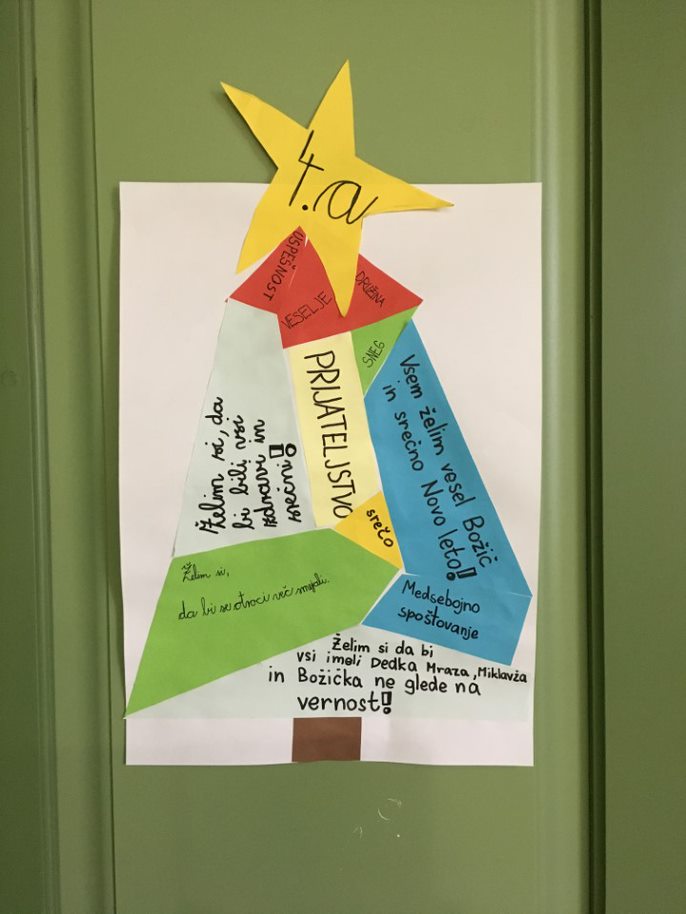 4.a
USPEŠNOST
VESELJE
DRUŽINA
SNEG
PRIJATELJSTVO
Želim si, da
bi bili vsi
zdravi in
srečni!
Vsem želim vesel Božič
in srečno Novo leto!
srečo
Želim si,
da bi se otroci več smejali.
Medsebojno
spoštovanje
Želim si da bi
vsi imeli Dedka Mraza, Miklavža
in Božička ne glede na
vernost!